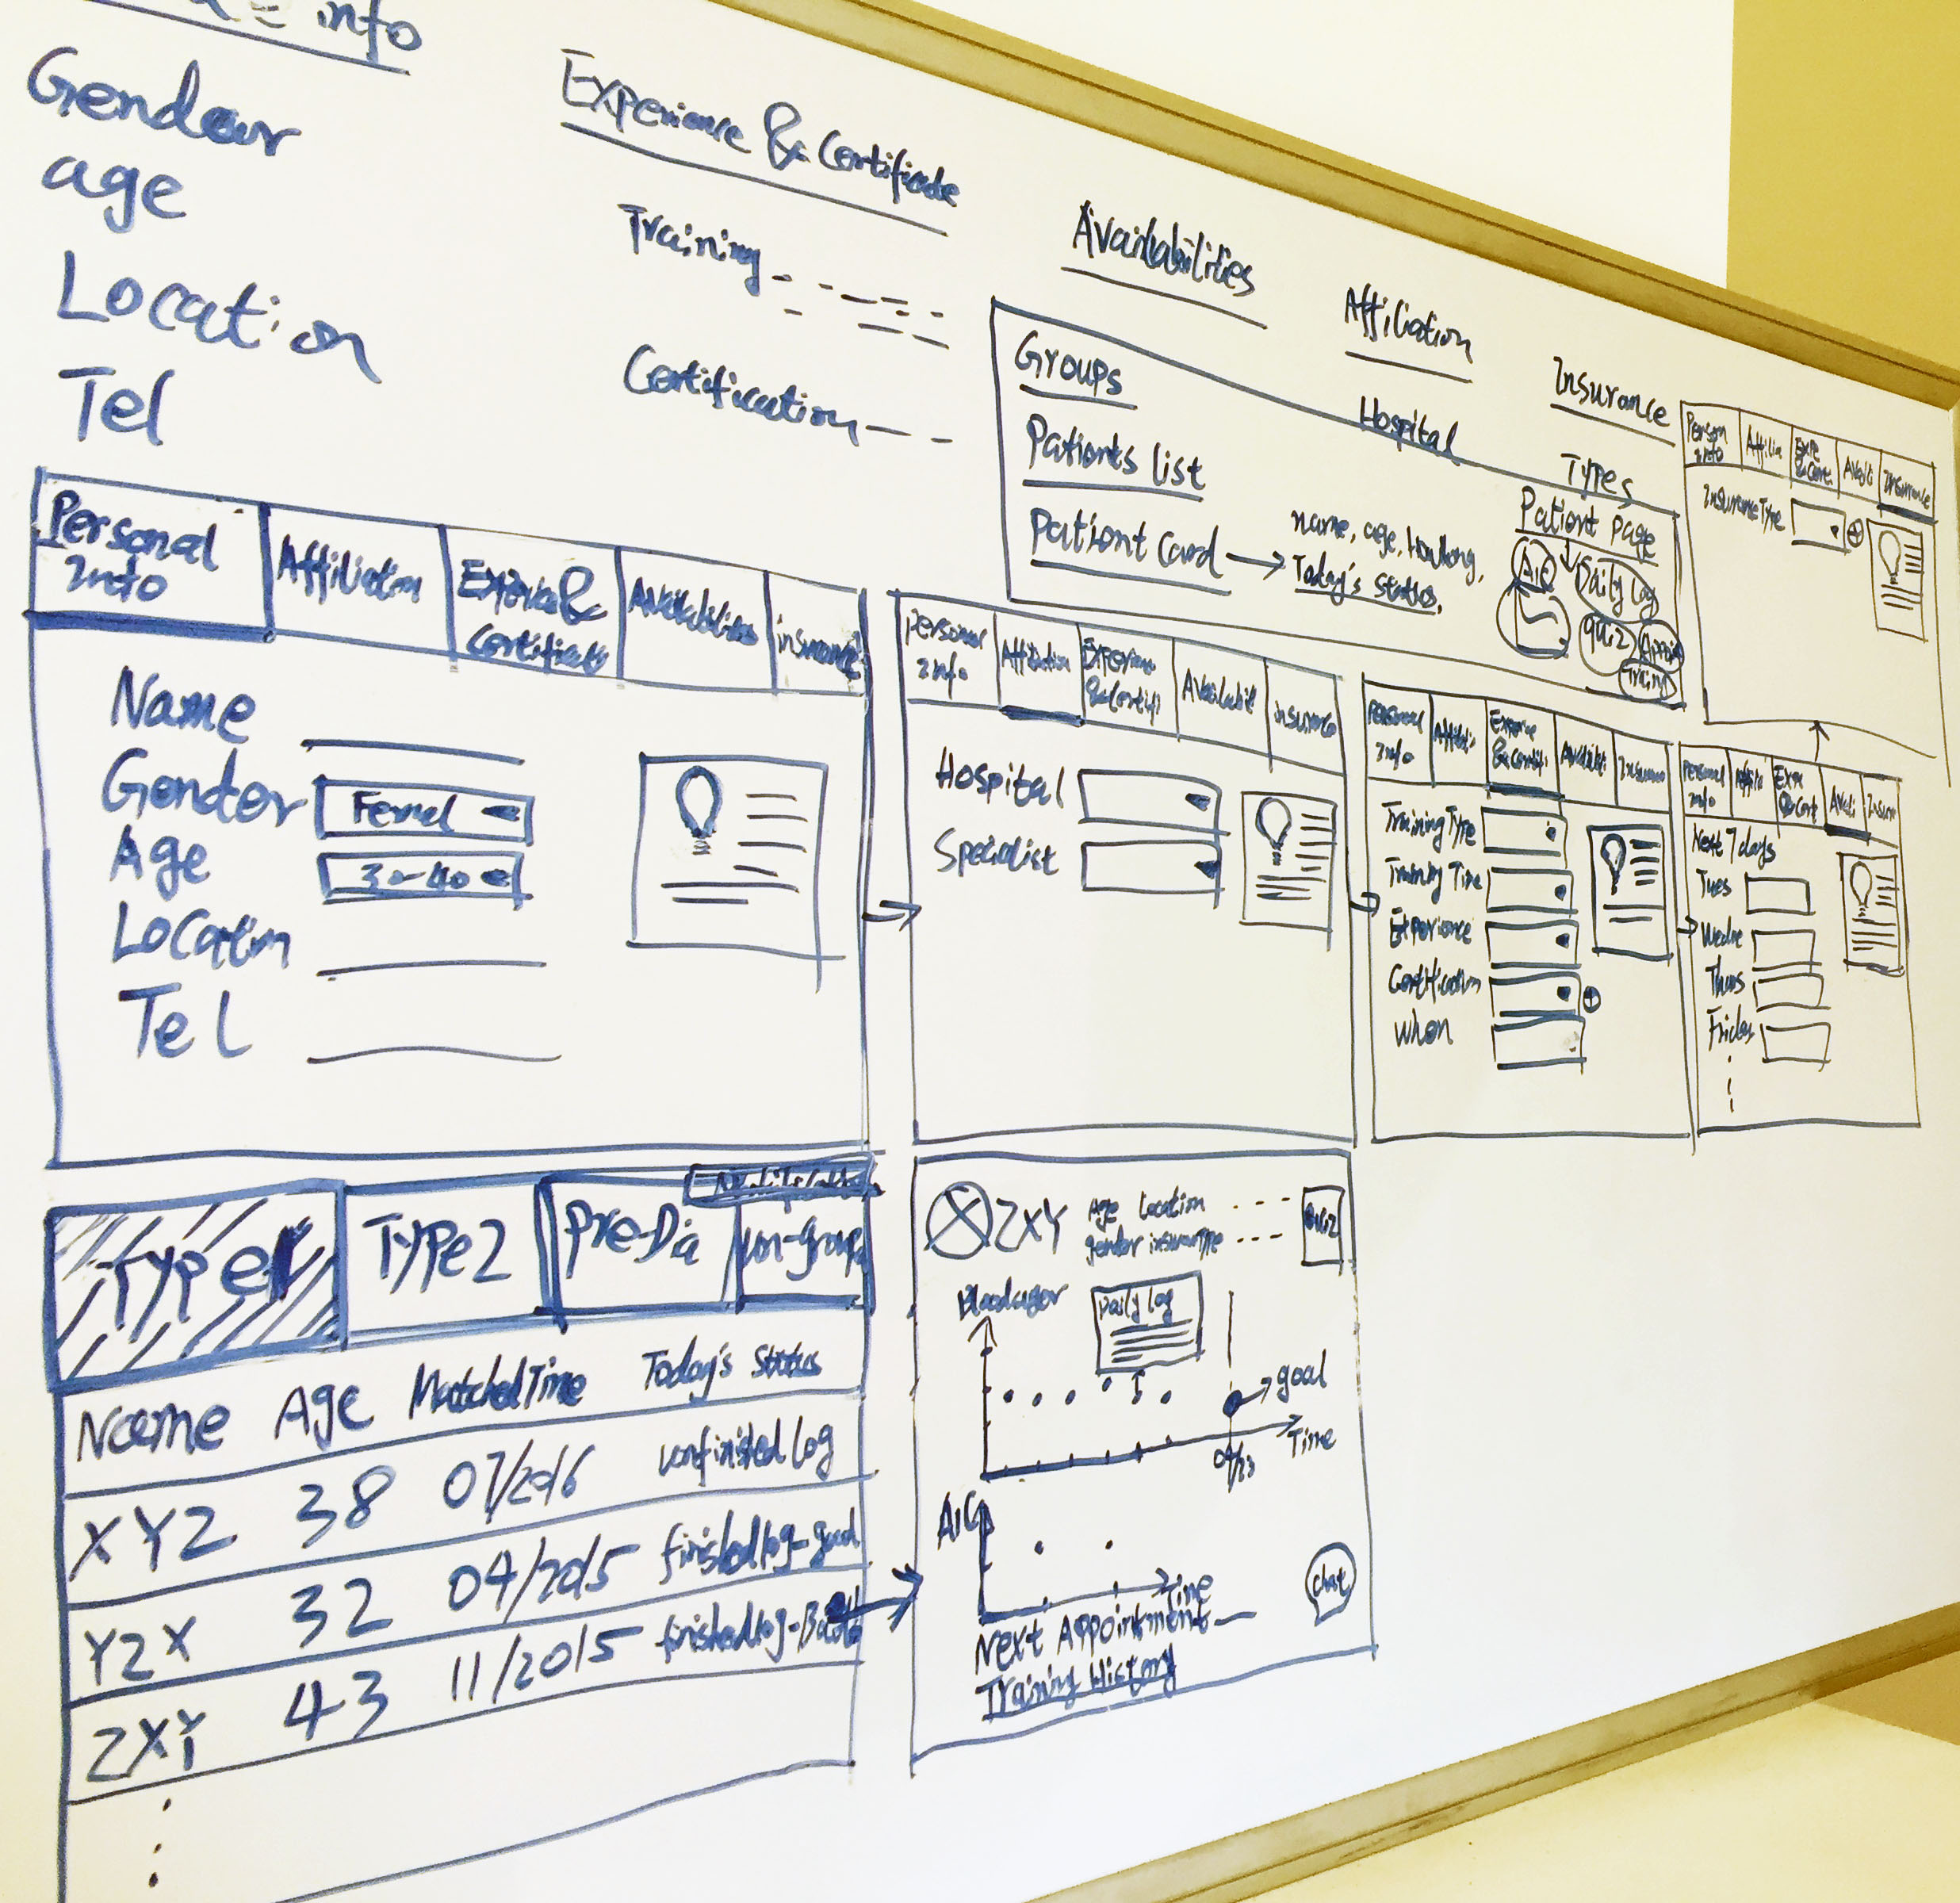 info
Gendeur
age
Location
Tel
Experience & Certificate
Training
Certification
Availabilities
Affiliation
Hospital
Insurance
Types
Groups
Patients list
Patient Card → name, age, How long,
Today's status.
Patient page
A1C
Daily log
quiz
Appoint
Training
Personal Info
Affiliation
Experience & Certificate
Availabilities
insurance
Name
Gender
Femal
Age
30-40
Location
Tel
Personal Info
Affiliation
Experience & Certifi
Availabit
insurance
Hospital
Specialist
Personal Info
Affiliati
Experience & Certifi
Availabi
Insurance
Training Type
Training Time
Experience
Certification
When
Personal Info
Affilia
Expe & Cert
Avali
Insur
Next 7 days
Tues
Wedne
Thurs
Friday
Person Info
Affilia
Expe & Cert.
Avali
Insurance
Insurance Type
Notification
Type 1
Type 2
Pre-Dia
Un-group
Name Age Matched Time Today's Status
XYZ 38 07/2016 unfinished log
YZX 32 04/2015 finished log-good
ZXY 43 11/2015 finished log-
ZXY
Age Location
gender insurance Type
Quiz
Blood suger
Daily log
goal
Time
09/23
A1C
Time
chat
Next Appointment
Training History